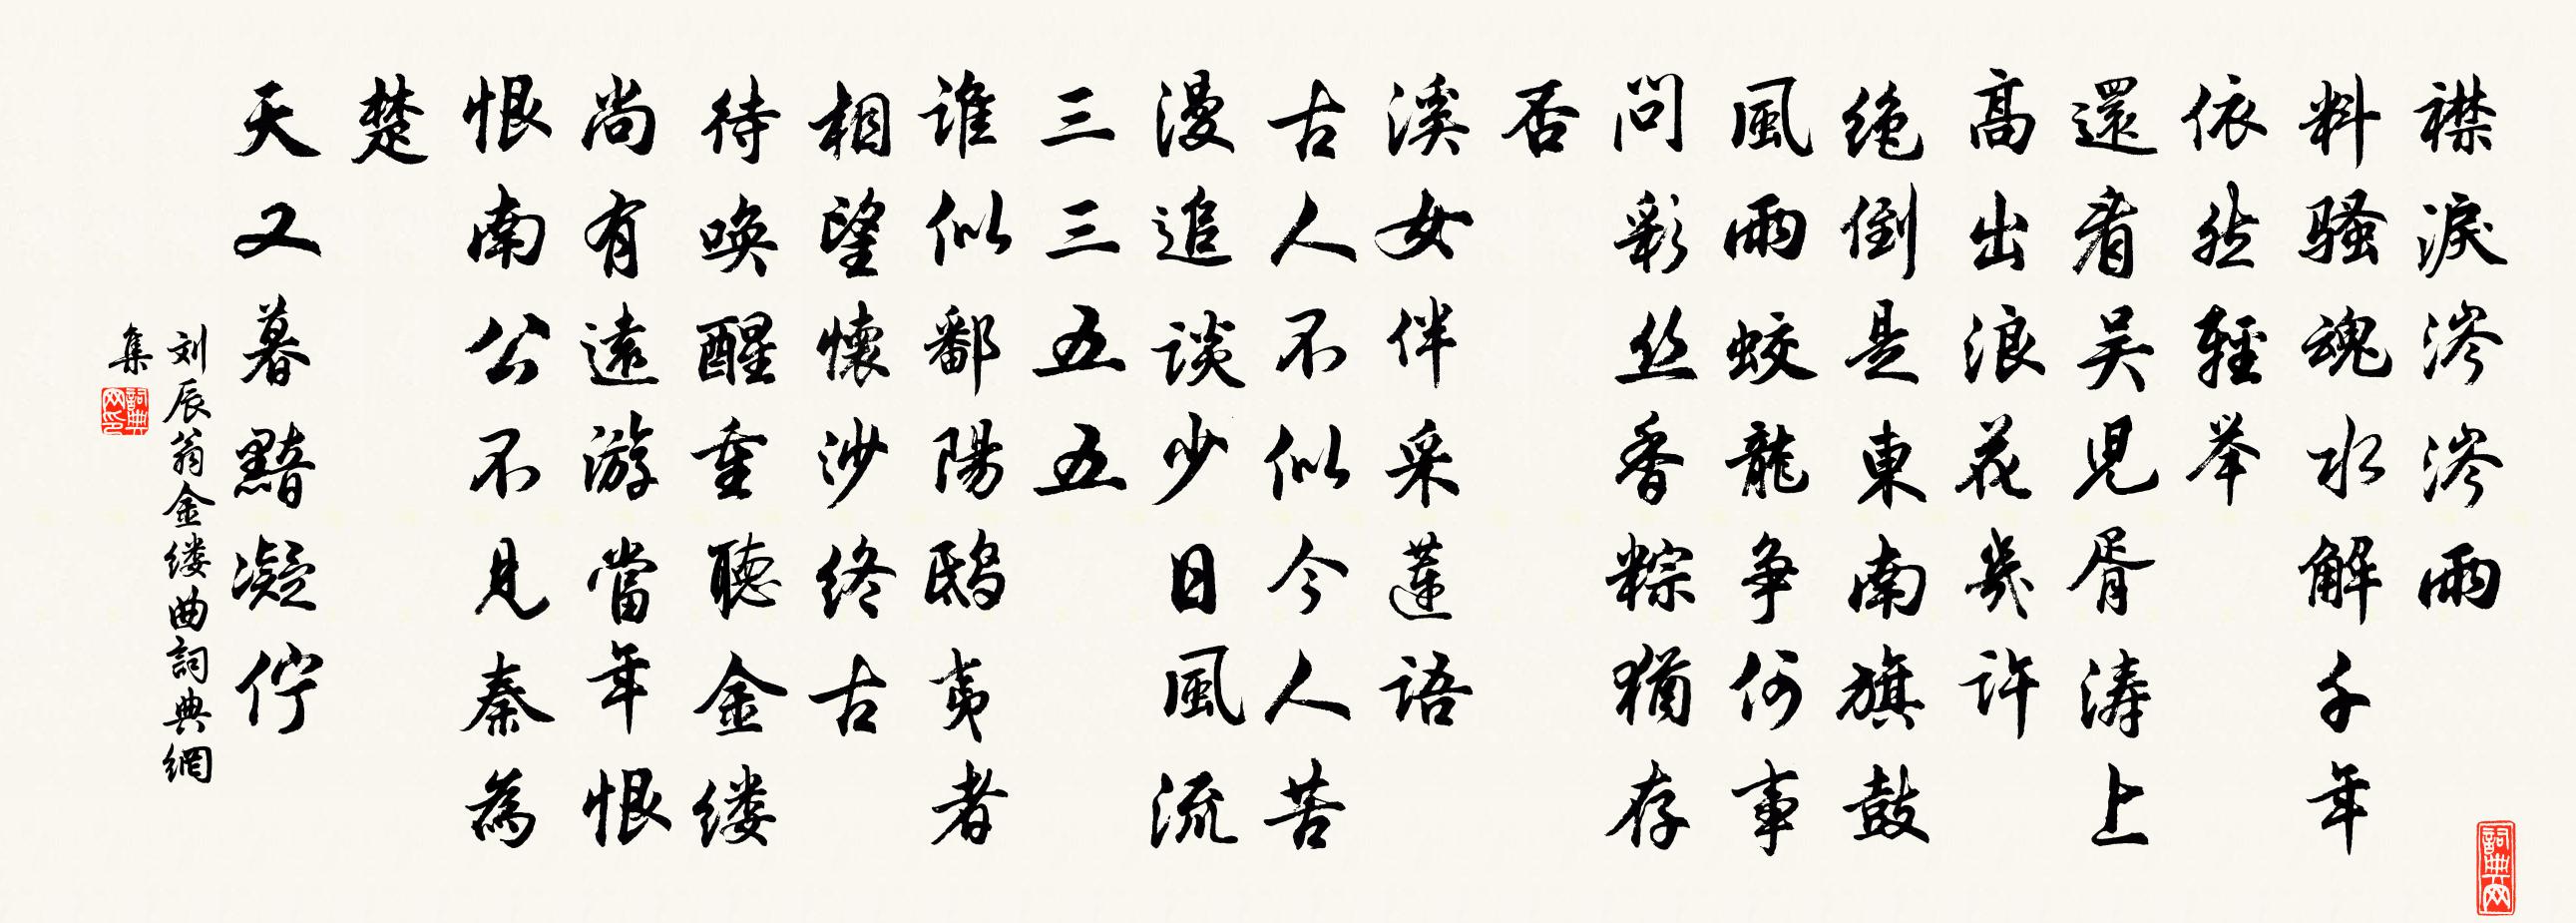 襟淚涔涔雨
料騷魂水解千年
依然輕举
還看吴兒胥涛上
高出浪花幾许
绝倒是東南旗鼓
風雨蛟龍争何事
问彩丝香粽猶存
否
溪女伴采蓮语
古人不似今人苦
漫追谈少日風流
三三五五
谁似鄱陽鸱夷者
相望懷沙终古
待唤醒重聽金缕
尚有遠游當年恨
恨南公不見秦為
楚
天又暮黯凝佇
刘辰翁金缕曲詞典網
集
詞典网印
詞典网